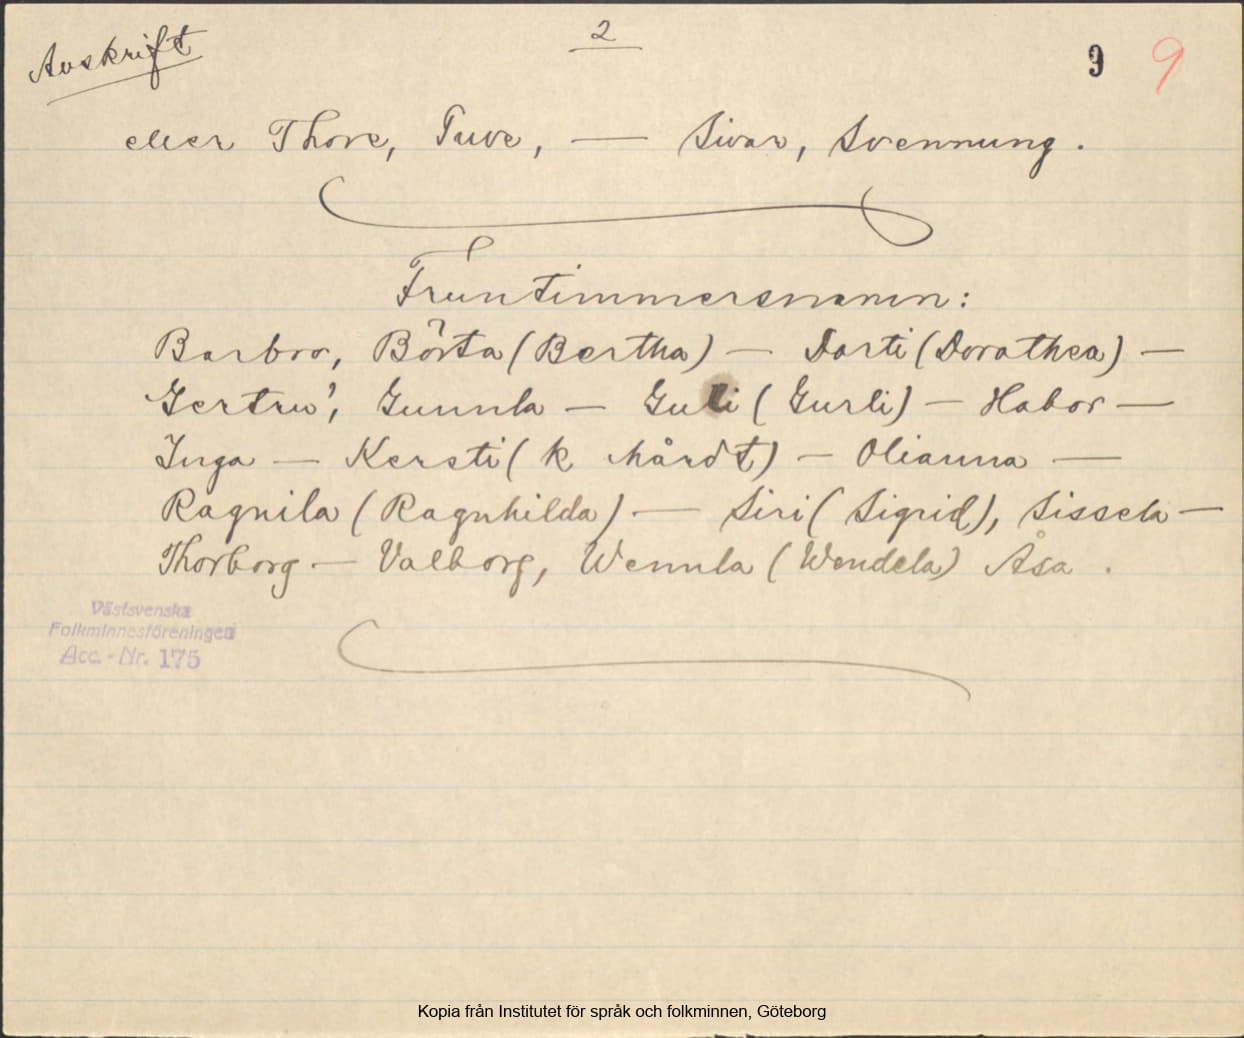 Avskrift
2
9 9
eller Thore, Tuve, — Sivar, Svennung.
Fruntimmersnamn:
Barbro, Börta (Bertha) — Darti (Dorathea) —
Gertru', Gunnla — Guli (Gurli) — Habor —
Inga — Kersti (k hårdt) — Olianna —
Ragnila (Ragnhilda) — Siri (Sigrid), Sissela —
Thorborg — Valborg, Wennla (Wendela) Åsa.
Västsvenska
Folkminnesföreningen
Acc.-Nr. 175
Kopia från Institutet för språk och folkminnen, Göteborg